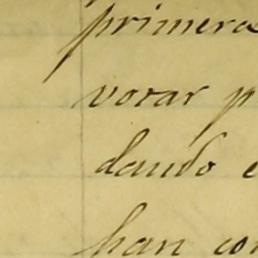 primera
vorar p
dando e
han con